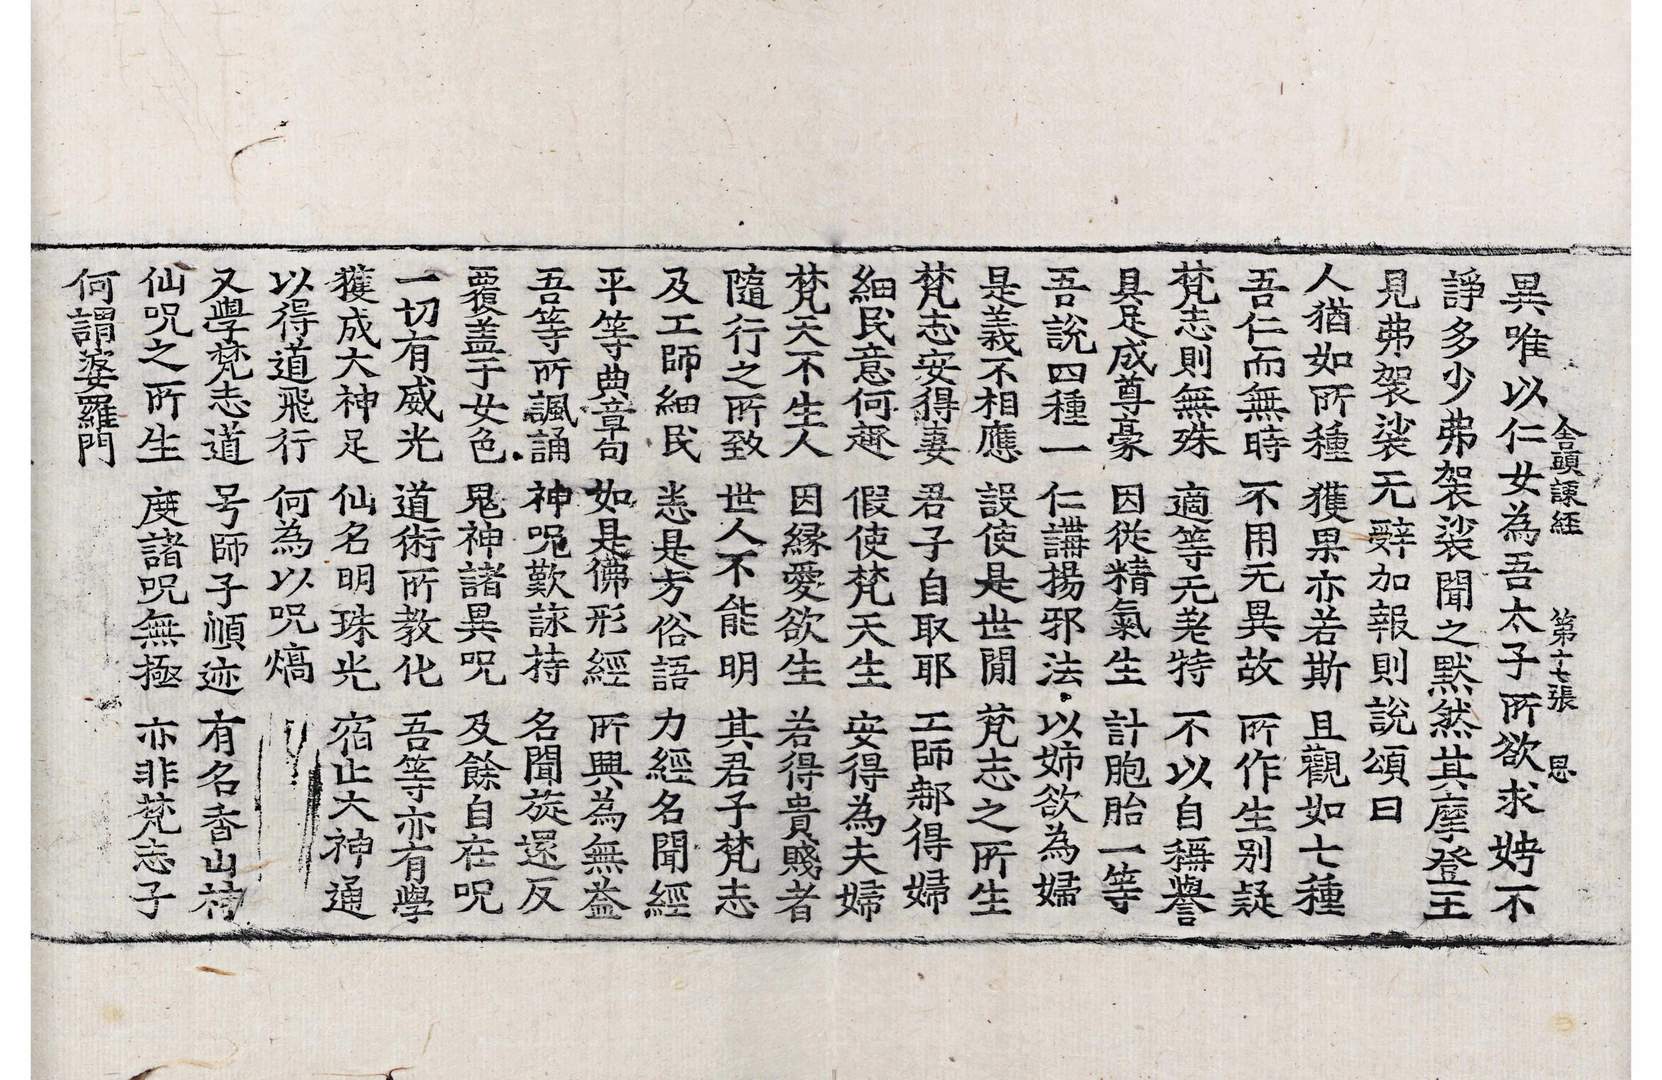 舍頭諫經 第六七張 思
異唯以仁女為吾太子所欲求娉不
諍多少弗袈裟聞之默然其摩登王
見弗袈裟无辤加報則說頌曰
人猶如所種 獲果亦若斯 且觀如七種
吾仁而無時 不用元異故 所作生别疑
梵志則無殊 適等无羌特 不以自稱譽
具足成尊豪 因從精氣生 計胞胎一等
吾說四種一 仁講揚邪法 以姊欲為婦
是義不相應 設使是世閒 梵志之所生
梵志安得妻 君子自取耶 工師鄅得婦
細民意何趣 假使梵天生 安得為夫婦
梵天不生人 因緣愛欲生 若得貴賤者
隨行之所致 世人不能明 其君子梵志
及工師細民 恙是方俗語 力經名聞經
平等典章句 如是佛形經 所興為無益
吾等所諷誦 神呪歎詠持 名聞㫌還反
覆盖于女色 鬼神諸異呪 及餘自在呪
一切有威光 道術所教化 吾等亦有學
獲成大神足 仙名明珠光 宿止大神通
以得道飛行 何為以呪熇
又學梵志道 号師子順迹 有名香山神
仙呪之所生 度諸呪無極 亦非梵志子
何謂婆羅門